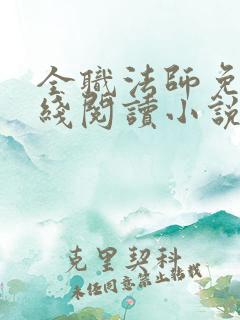 全職法師免
綫閱讀小說
克里契科
未经同意禁止转载